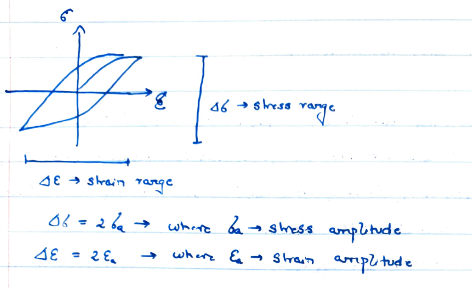 σ
ε
Δσ → stress range
Δε → strain range
Δσ = 2σa → where σa → stress amplitude
Δε = 2εa → where εa → strain amplitude